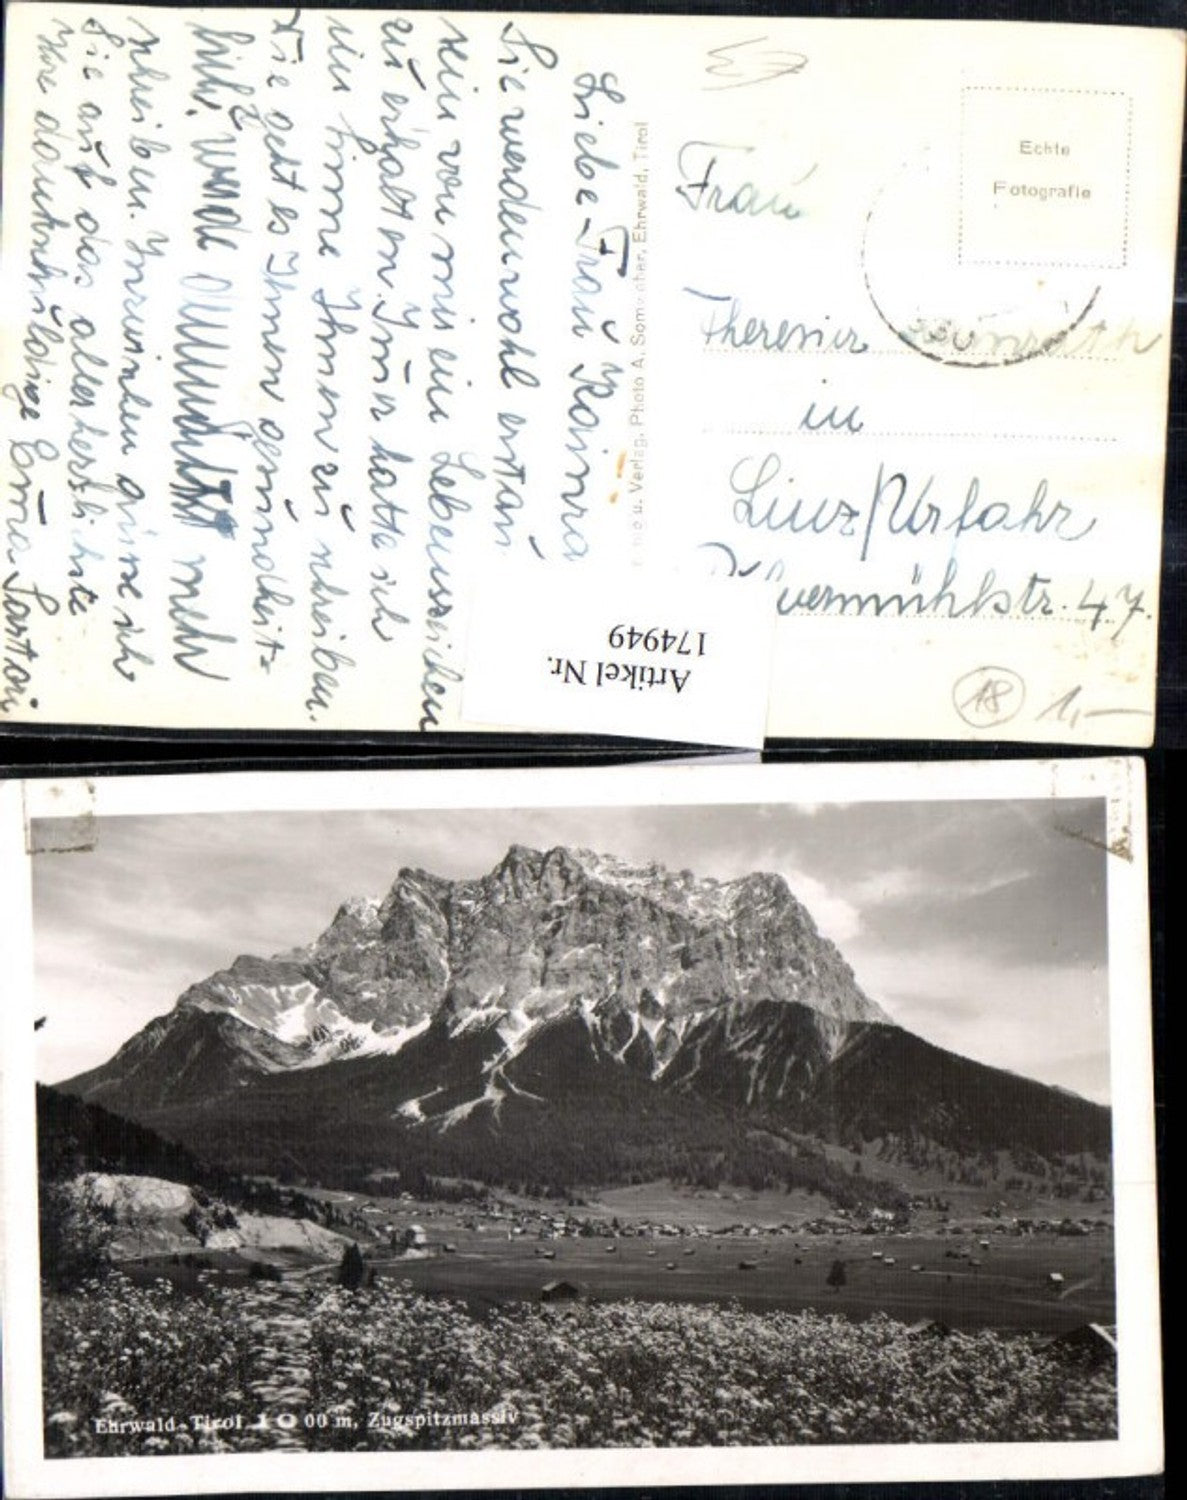 Liebe Frau Kainra
Sie werden wohl erstau
sein von mir ein Lebenszeichen
zu erhalten. Immer hatte ich
im Sinne Ihnen zu schreiben.
Wie geht es Ihnen gesundheit-
lich? mehr
schreiben. Inzwischen grüsse ich
Sie auf das allerherzlichste
Ihre dankschuldige Erna Sartori
Photo u. Verlag, Photo A. Somweber, Ehrwald, Tirol
Echte
Fotografie
Frau
Theresia
in
Linz/Urfahr
47.
18 1,—
Artikel Nr.
174949
Ehrwald-Tirol 1000 m, Zugspitzmassiv